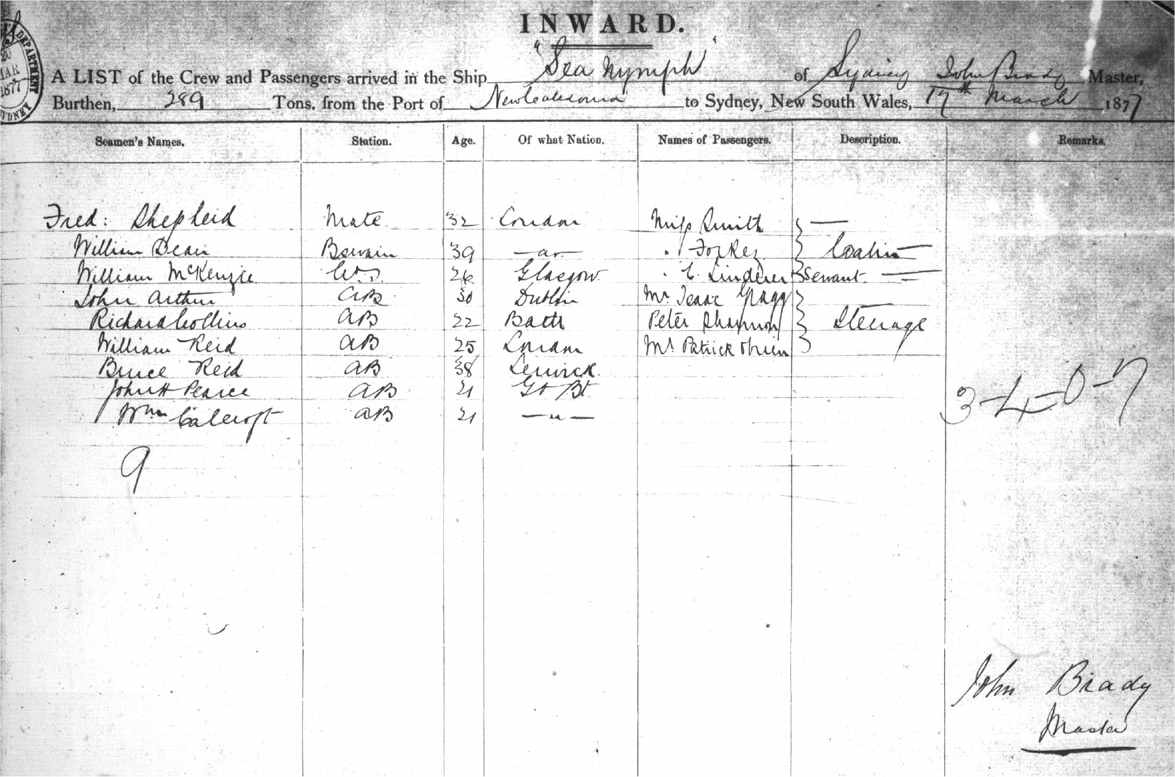 INWARD.
A LIST of the Crew and Passengers arrived in the Ship "Sea Nymph" of Sydney John Brady Master,
Burthen, 289 Tons, from the Port of New Caledonia to Sydney, New South Wales, 17th March 1877
Seamen's Names. Station. Age. Of what Nation. Names of Passengers. Description. Remarks.
Fred: Shepherd Mate 32 London Miss Smith —
William Dean Boswain 39 — " — " Cabin —
William McKenzie 26 Glasgow " E Linderer Servant —
John Arthur AB 30 Dublin Mr Isaac
Richard Collins AB 22 Bath Peter Shannon Steerage
William Reid AB 25 London Mr Patrick Obrien
Bruce Reid AB 38 Lerwick
John H Pearce AB 21 Gt Bt
Wm Calcroft AB 21 — " —
3-4-0-7
9
John Brady
Master
MAR
1877